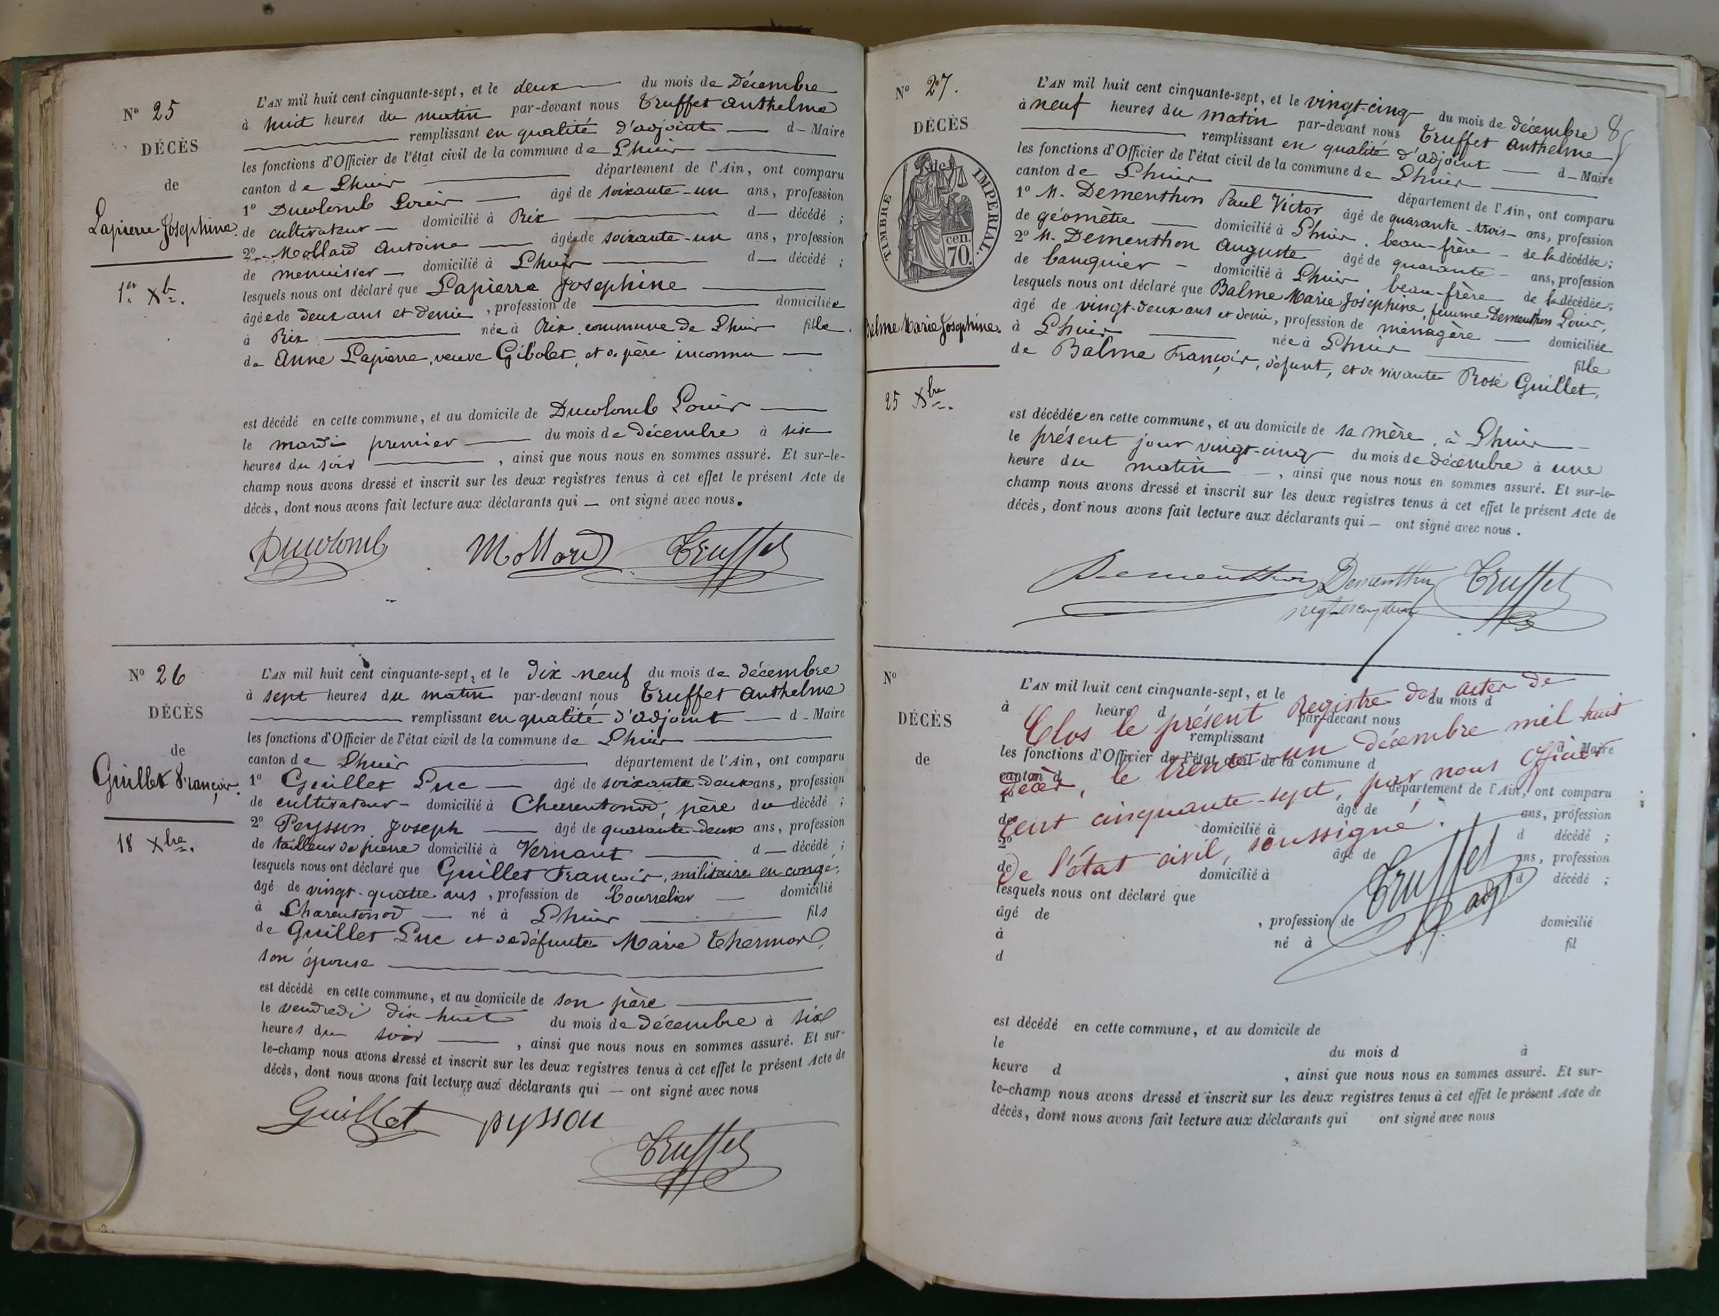 N° 25
DÉCÈS
de
Lapierre Josephine.
1er Xbre.
L'AN mil huit cent cinquante-sept, et le deux du mois de Décembre
à huit heures du matin par-devant nous Truffet Anthelme
remplissant en qualité d'adjoint d Maire
les fonctions d'Officier de l'état civil de la commune de Lhuis
canton de Lhuis département de l'Ain, ont comparu
1° Ducolomb Louis âgé de soixante-un ans, profession
de cultivateur domicilié à Rix d décédé ;
2° Mollard Antoine âgé de soixante-un ans, profession
de menuisier domicilié à Lhuis d décédé ;
lesquels nous ont déclaré que Lapierre Josephine
âgée de deux ans et demie, profession de domiciliée
à Rix née à Rix, commune de Lhuis fille
de Anne Lapierre, veuve Gibolet, et de père inconnu
est décédé en cette commune, et au domicile de Ducolomb Louis
le mardi premier du mois de décembre à six
heures du soir , ainsi que nous nous en sommes assuré. Et sur-le-
champ nous avons dressé et inscrit sur les deux registres tenus à cet effet le présent Acte de
décès, dont nous avons fait lecture aux déclarants qui ont signé avec nous.
Ducolomb Mollard Truffet
N° 26
DÉCÈS
de
Guillet François.
18 Xbre.
L'AN mil huit cent cinquante-sept, et le dix neuf du mois de décembre
à sept heures du matin par-devant nous Truffet Anthelme
remplissant en qualité d'adjoint d Maire
les fonctions d'Officier de l'état civil de la commune de Lhuis
canton de Lhuis département de l'Ain, ont comparu
1° Guillet Luc âgé de soixante-deux ans, profession
de cultivateur domicilié à Charentonod, père du décédé ;
2° Peysson Joseph âgé de quarante-deux ans, profession
de tailleur de pierre domicilié à Vernant d décédé ;
lesquels nous ont déclaré que Guillet François, militaire en congé,
âgé de vingt-quatre ans, profession de bourrelier domicilié
à Charentonod né à Lhuis fils
de Guillet Luc et de défunte Marie
son épouse
est décédé en cette commune, et au domicile de son père
le vendredi dix-huit du mois de décembre à six
heures du soir , ainsi que nous nous en sommes assuré. Et sur-
le-champ nous avons dressé et inscrit sur les deux registres tenus à cet effet le présent Acte de
décès, dont nous avons fait lecture aux déclarants qui ont signé avec nous
Guillet pysson
Truffet
N° 27.
DÉCÈS
TIMBRE IMPÉRIAL.
70. cen.
Balme Marie Josephine.
25 Xbre.
L'AN mil huit cent cinquante-sept, et le vingt-cinq du mois de décembre
à neuf heures du matin par-devant nous Truffet Anthelme
remplissant en qualité d'adjoint d Maire
les fonctions d'Officier de l'état civil de la commune de Lhuis
canton de Lhuis département de l'Ain, ont comparu
1° M. Dementhon Paul Victor âgé de quarante-trois ans, profession
de géomètre domicilié à Lhuis, beau-frère de la décédée;
2° M. Dementhon Auguste âgé de quarante ans, profession
de banquier domicilié à Lhuis, beau-frère de la décédée;
lesquels nous ont déclaré que Balme Marie Josephine, femme Dementhon Louis,
âgé de vingt-deux ans et demie, profession de ménagère domiciliée
à Lhuis née à Lhuis fille
de Balme François, défunt, et de vivante Rose Guillet.
est décédée en cette commune, et au domicile de sa mère, à Lhuis
le présent jour vingt-cinq du mois de décembre à une
heure du matin , ainsi que nous nous en sommes assuré. Et sur-le-
champ nous avons dressé et inscrit sur les deux registres tenus à cet effet le présent Acte de
décès, dont nous avons fait lecture aux déclarants qui ont signé avec nous.
Dementhon Dementhon Truffet
N°
DÉCÈS
de
L'AN mil huit cent cinquante-sept, et le du mois d
à heure d par-devant nous
remplissant d Maire
les fonctions d'Officier de l'état civil de la commune d
canton d département de l'Ain, ont comparu
1° âgé de ans, profession
de domicilié à d décédé ;
2° âgé de ans, profession
de domicilié à d décédé ;
lesquels nous ont déclaré que
âgé de , profession de domicilié
à né à fil
d
Clos le présent Registre des actes de
décès, le trente-un décembre mil huit
cent cinquante-sept, par nous Officier
de l'état civil, soussigné.
Truffet
adjt
est décédé en cette commune, et au domicile de
le du mois d à
heure d , ainsi que nous nous en sommes assuré. Et sur-
le-champ nous avons dressé et inscrit sur les deux registres tenus à cet effet le présent Acte de
décès, dont nous avons fait lecture aux déclarants qui ont signé avec nous